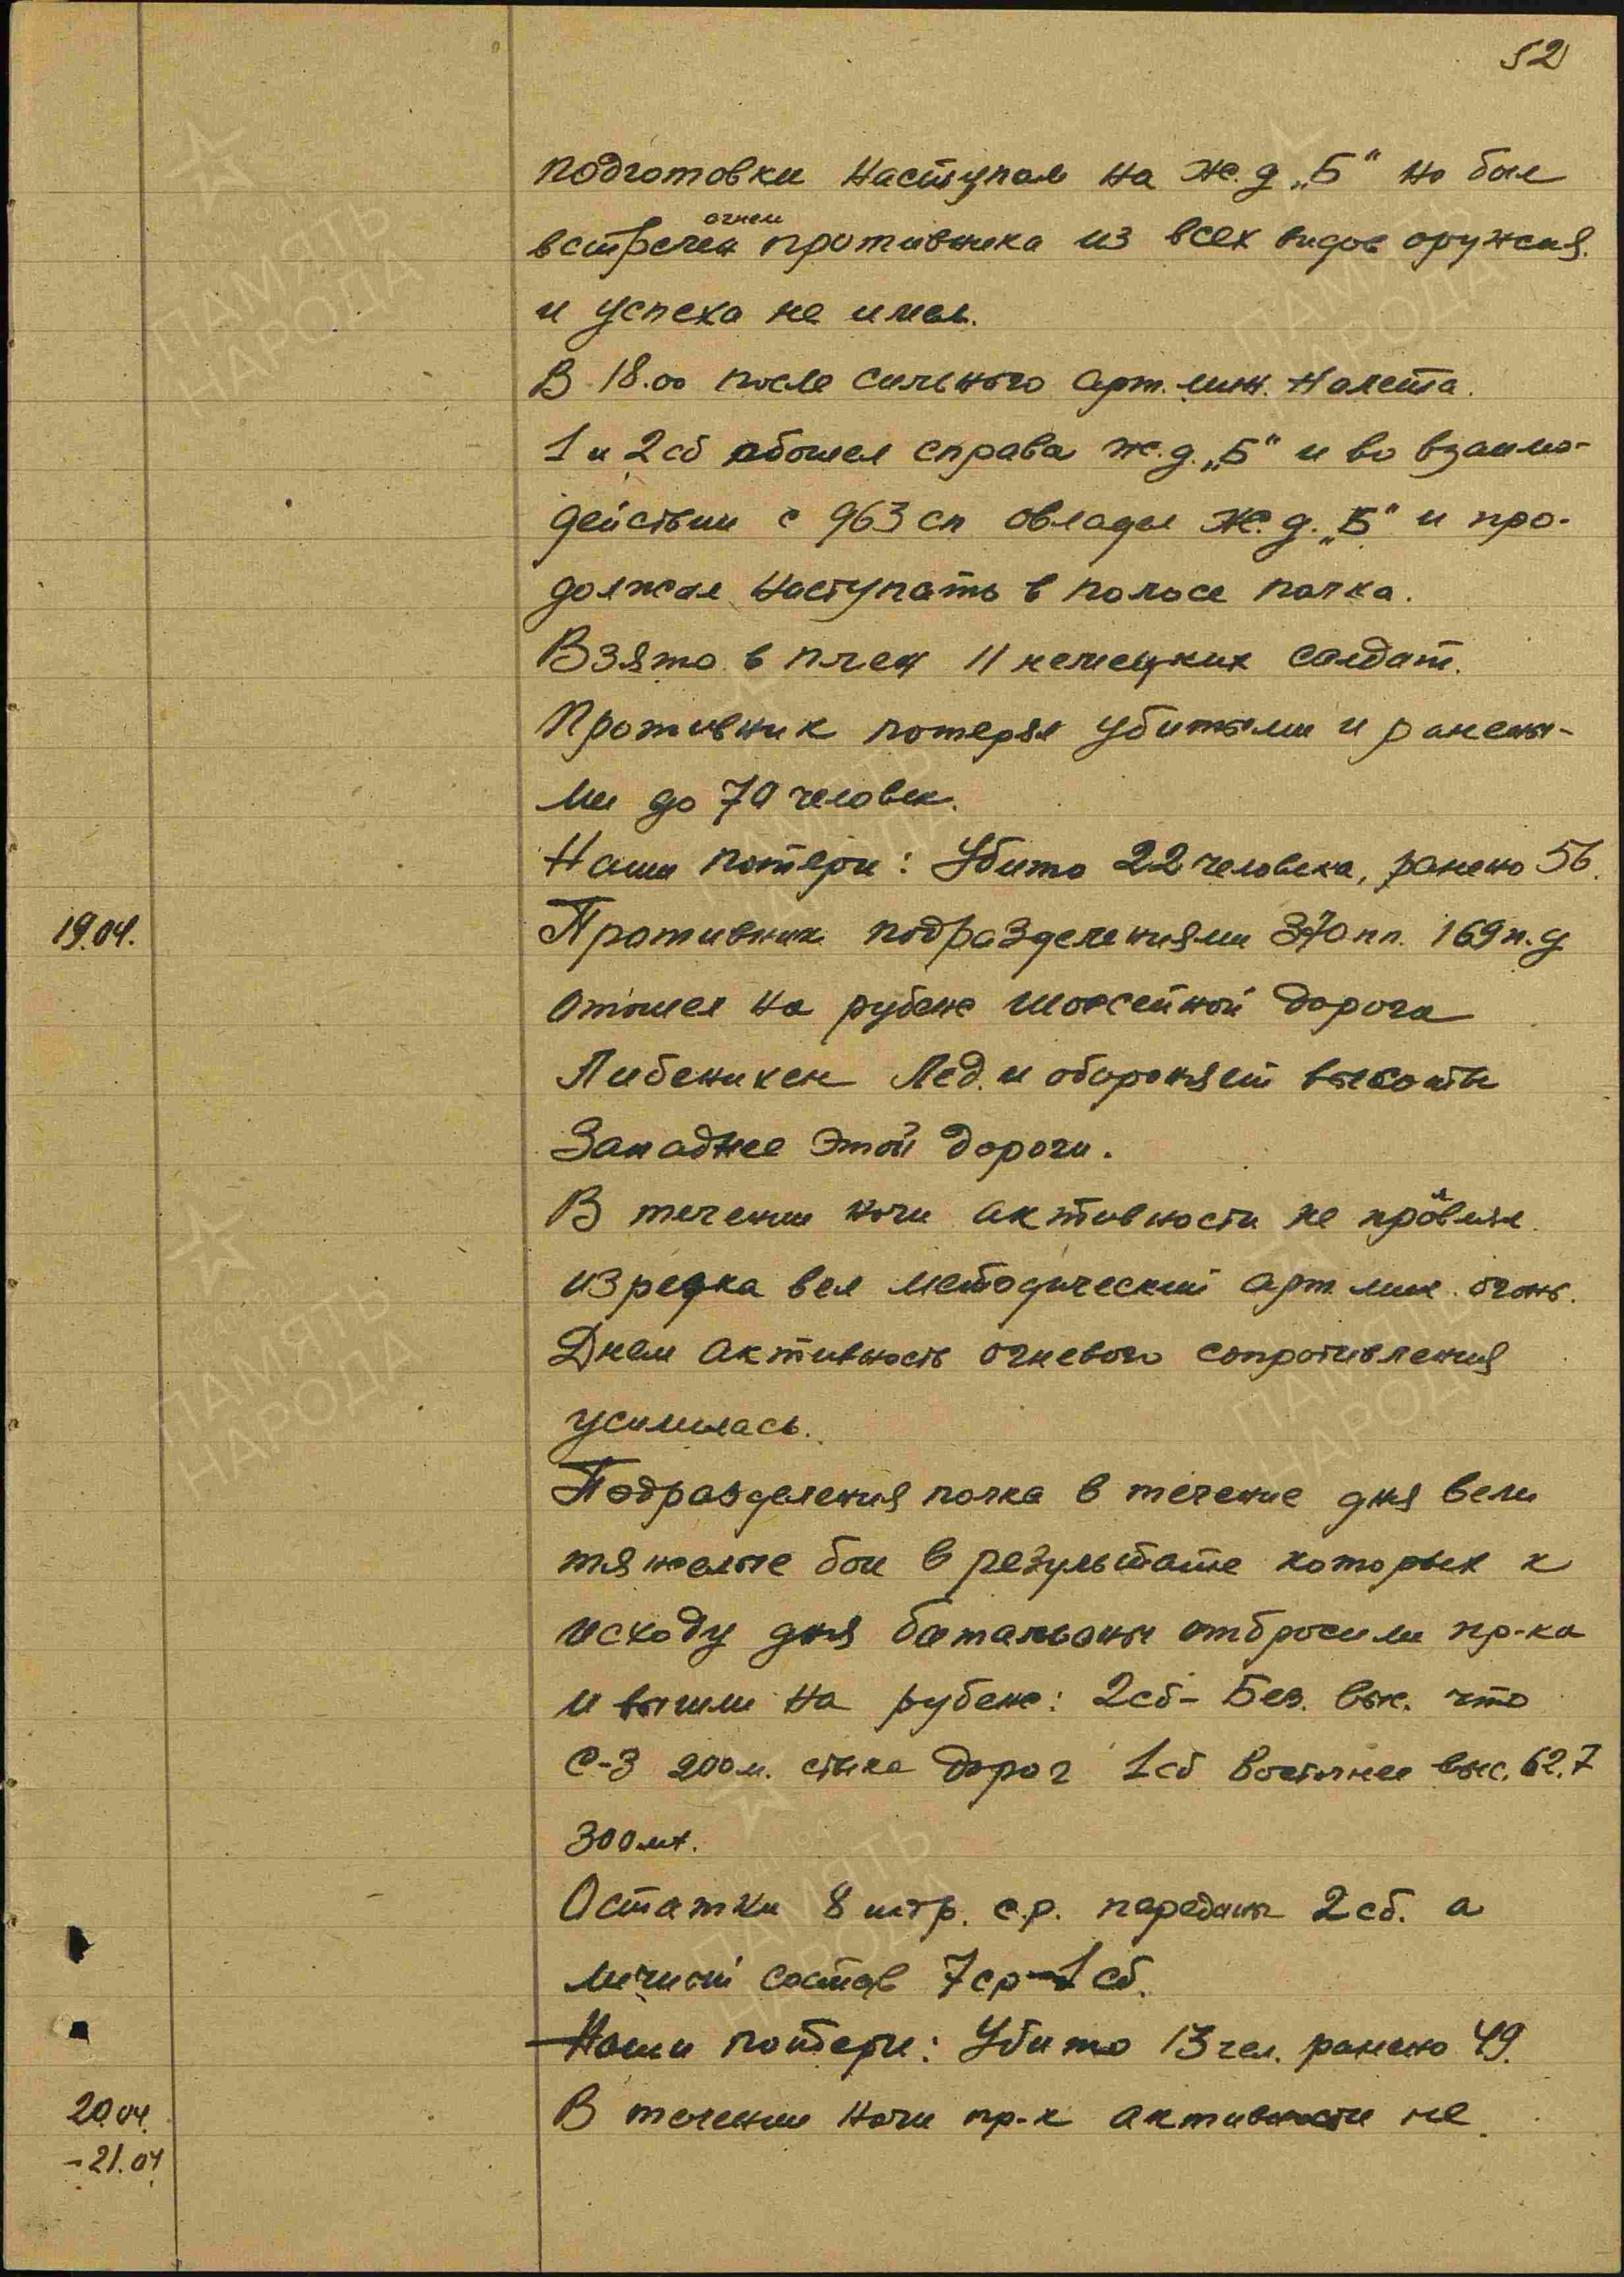 52
подготовки наступал на ж.д „Б“ но был
огнем
встречен противника из всех видов оружия.
и успеха не имел.
В 18.00 после сильного арт. мин. налета.
1 и 2 сб обошел справа ж.д. „Б“ и во взаимо-
действии с 963 сп овладел ж.д. „Б“ и про-
должал наступать в полосе полка.
Взято в плен 11 немецких солдат.
Противник потерял убитыми и ранены-
ми до 70 человек.
Наши потери: Убито 22 человека, ранено 56.
19.04.
Противник подразделениями 370 пп. 169 п.д
отошел на рубеж шоссейной дорога
Либеникен Лед. и обороняет высоты
Западнее этой дороги.
В течении ночи активности не проявлял
изредка вел методический арт. мин. огонь.
Днем активность огневого сопротивления
усилилась.
Подразделения полка в течение дня вели
тяжелые бои в результате которых к
исходу дня батальоны отбросили пр-ка
и вышли на рубеж: 2сб- Без. выс. что
С-З 200 м. стыка дорог 1сб восточнее выс. 62.7
300 мт.
Остатки 8 штр. с.р. переданы 2 сб. а
личный состав 7 ср - 1 сб.
Наши потери: Убито 13 чел. ранено 49.
20.04.
-21.04
В течении ночи пр-к активности не
ПАМЯТЬ
НАРОДА
ПАМЯТЬ
НАРОДА
ПАМЯТЬ
НАРОДА
ПАМЯТЬ
НАРОДА
ПАМЯТЬ
НАРОДА
ПАМЯТЬ
НАРОДА